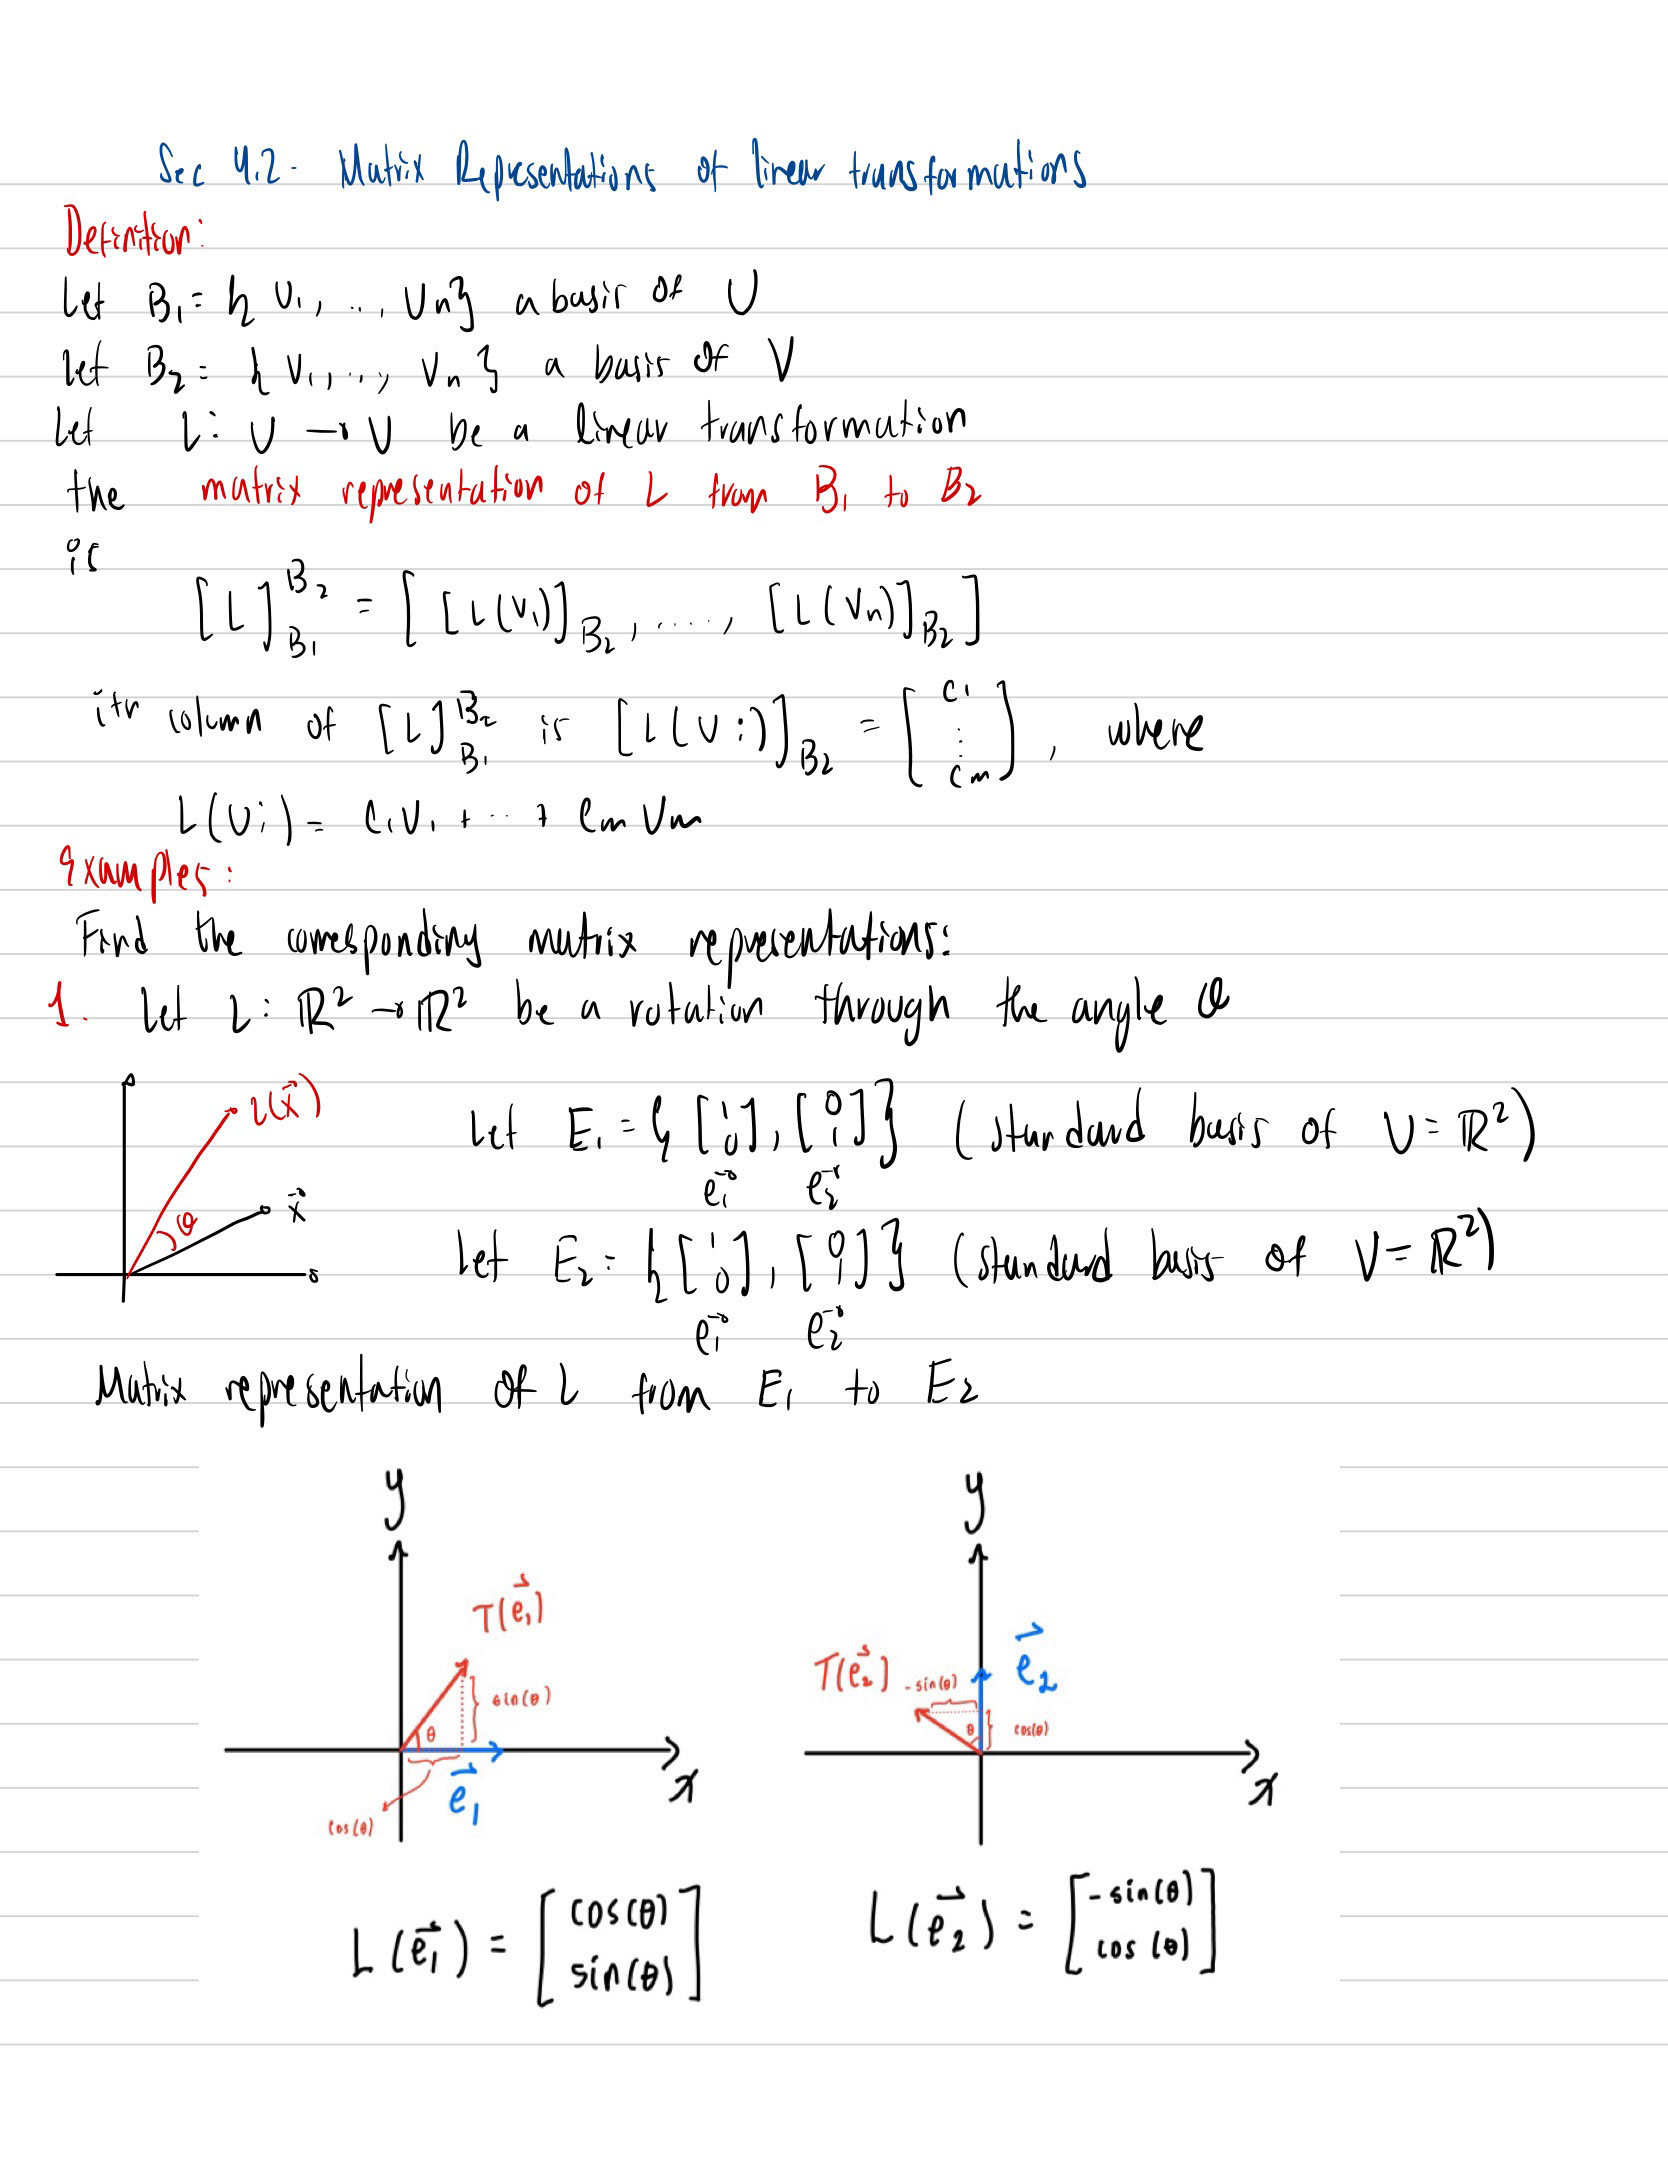 Sec 4.2- Matrix Representations of linear transformations
Definition:
Let B₁ = { U₁, ..., Un} a basis of U
Let B₂ = { V₁, ..., Vn } a basis of V
Let L: U → V be a linear transformation
the matrix representation of L from B₁ to B₂
is
[L]_{B₁}^{B₂} = [ [L(V₁)]_{B₂}, ....., [L(Vn)]_{B₂} ]
ith column of [L]_{B₁}^{B₂} is [L(Ui)]_{B₂} = [c₁ ⋮ cm], where
L(Ui) = C₁V₁ + ... + Cm Vm
Examples:
Find the corresponding matrix representations:
1. Let L: ℝ² → ℝ² be a rotation through the angle θ
L(x⃗)
θ
x⃗
Let E₁ = { [1 0], [0 1] } (standard basis of U = ℝ²)
e₁⃗ e₂⃗
Let E₂ = { [1 0], [0 1] } (standard basis of V = ℝ²)
e₁⃗ e₂⃗
Matrix representation of L from E₁ to E₂
y
T(e₁⃗)
sin(θ)
θ
x
e₁⃗
cos(θ)
L(e₁⃗) = [cos(θ) sin(θ)]
y
e₂⃗
T(e₂⃗) -sin(θ)
θ cos(θ)
x
L(e₂⃗) = [-sin(θ) cos(θ)]